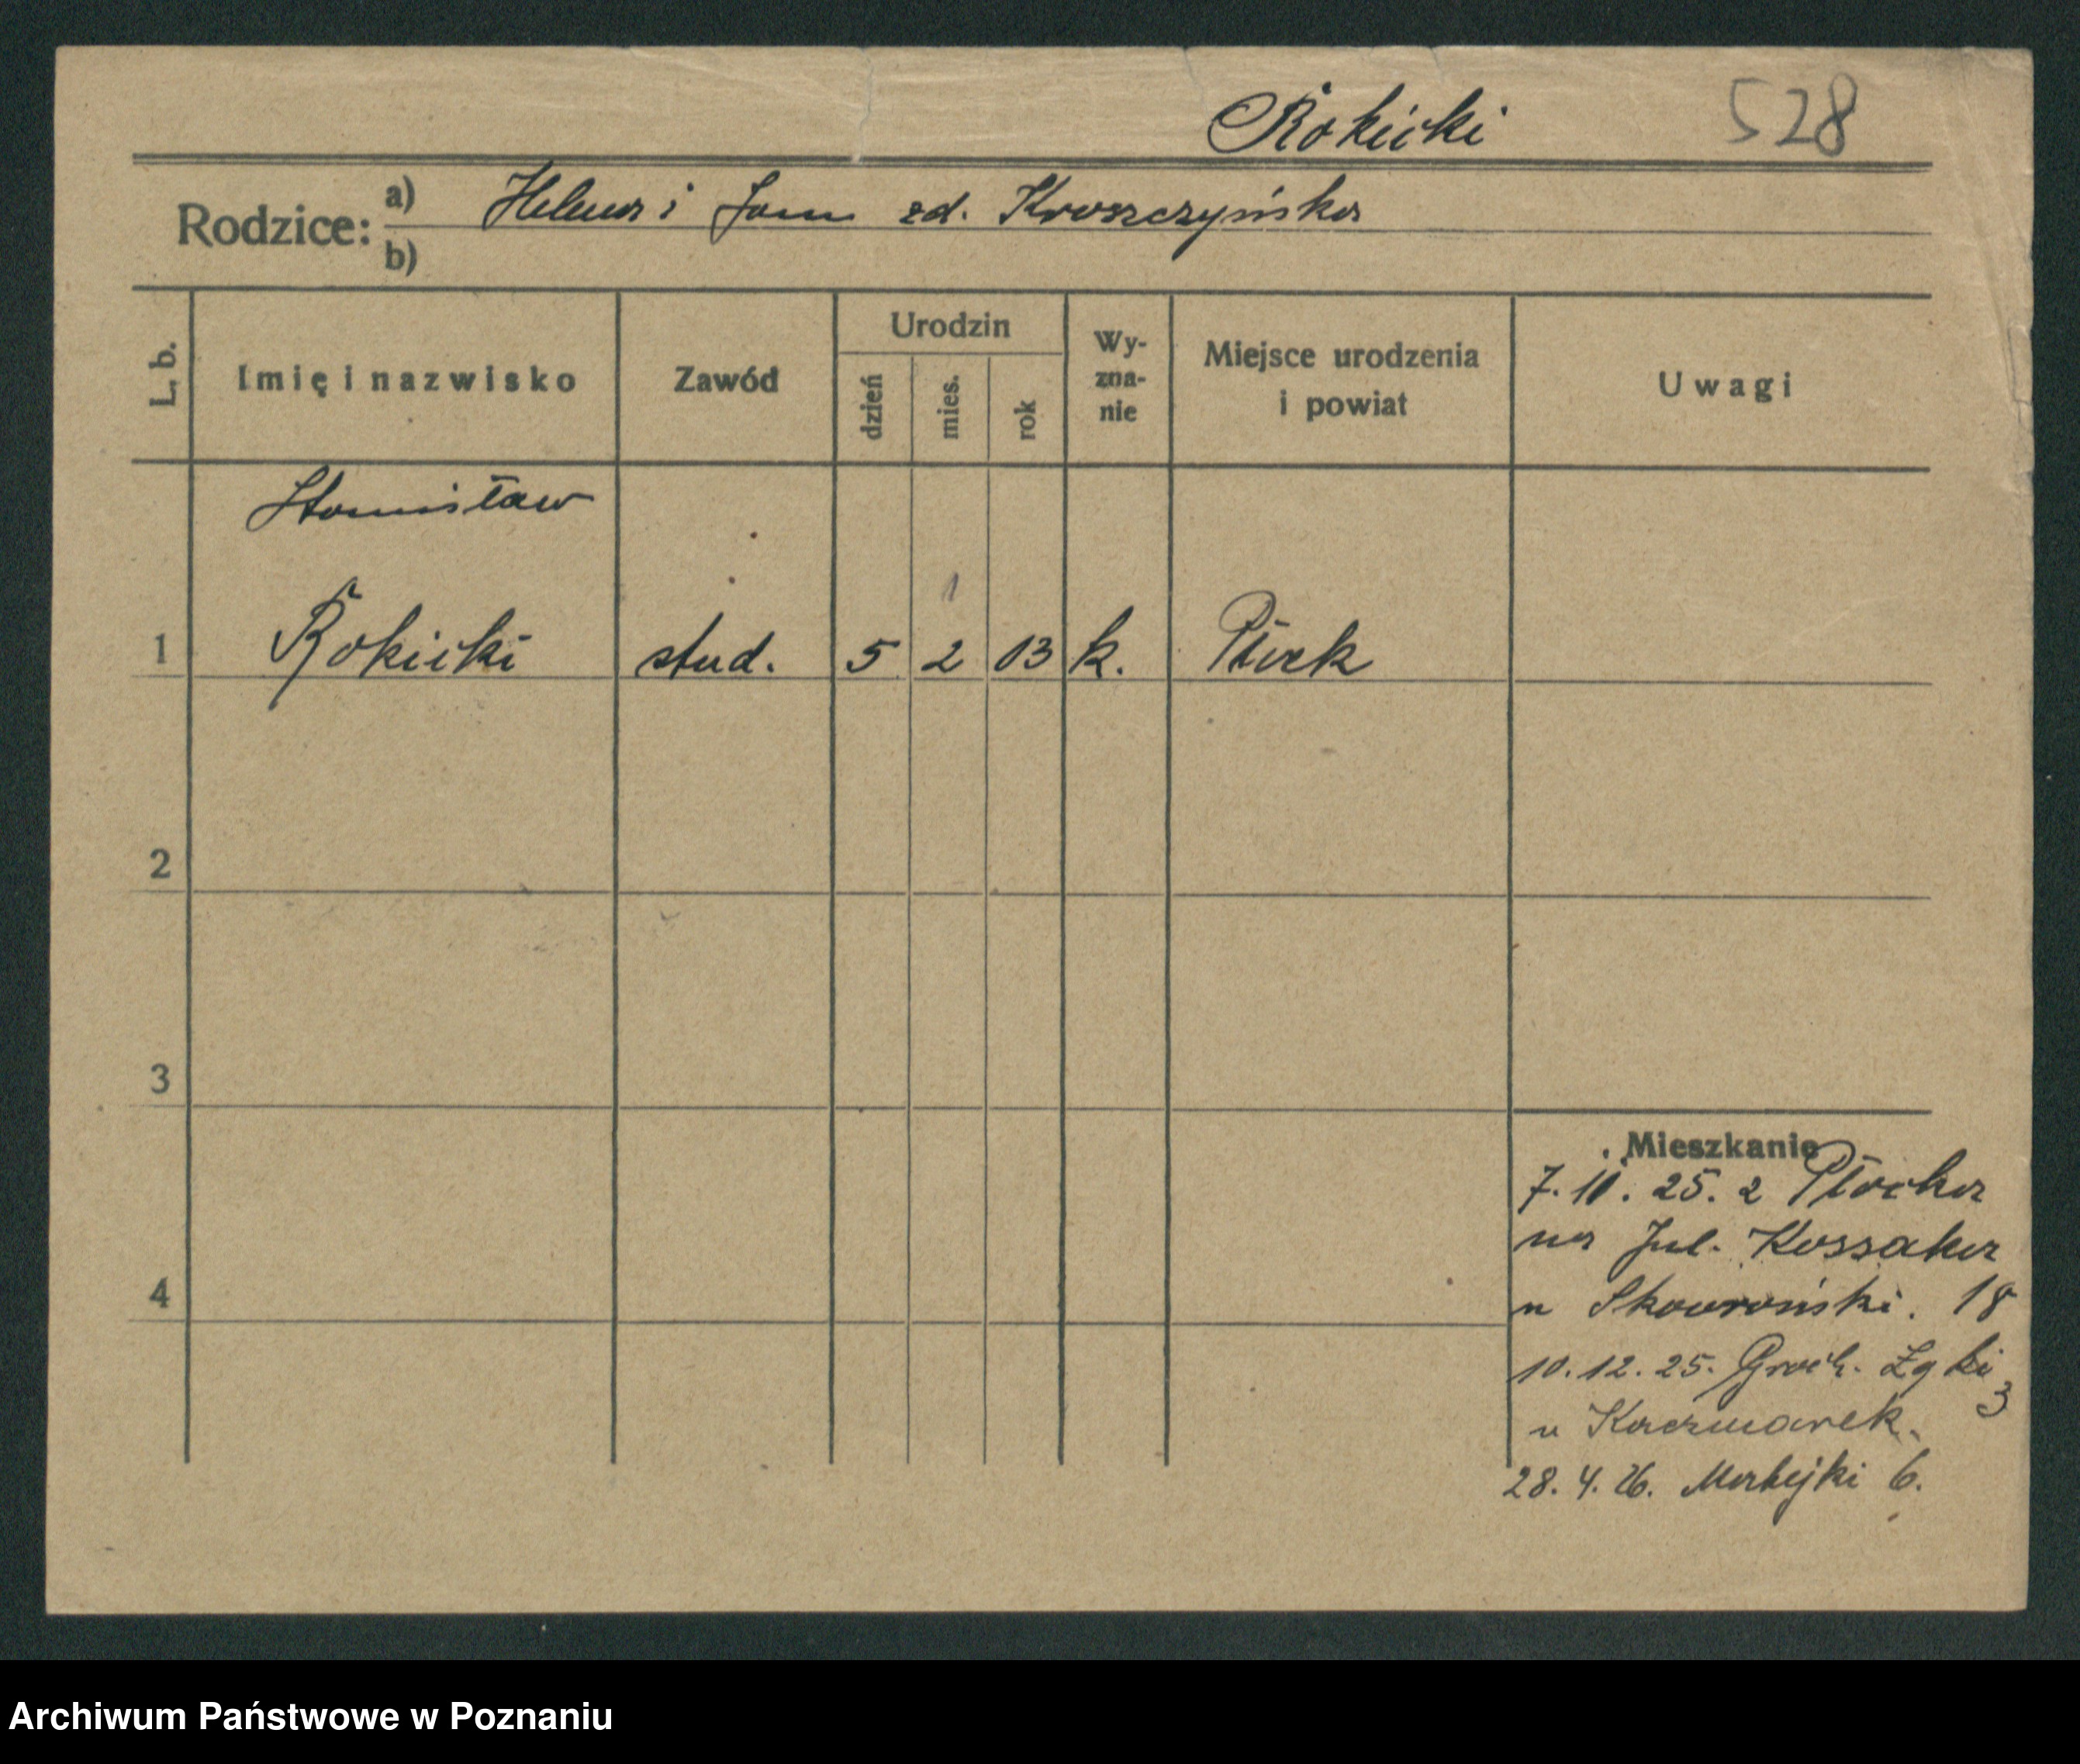 Rokicki 528
Rodzice: a) Helena i Jan zd. Kroszczyńska
b)
L. b. Imię i nazwisko Zawód Urodzin dzień mies. rok Wy-zna-nie Miejsce urodzenia i powiat Uwagi
Stanisław
1
1 Rokicki stud. 5 2 03 k. Płock
2
3
4
Mieszkanie
7. 10. 25. z Płocka
na Jul. Kossaka
u Skowroński. 18
10. 12. 25. Groch. Łąki 3
u Kaczmarek.
28. 4. 26. Matejki 6.
Archiwum Państwowe w Poznaniu